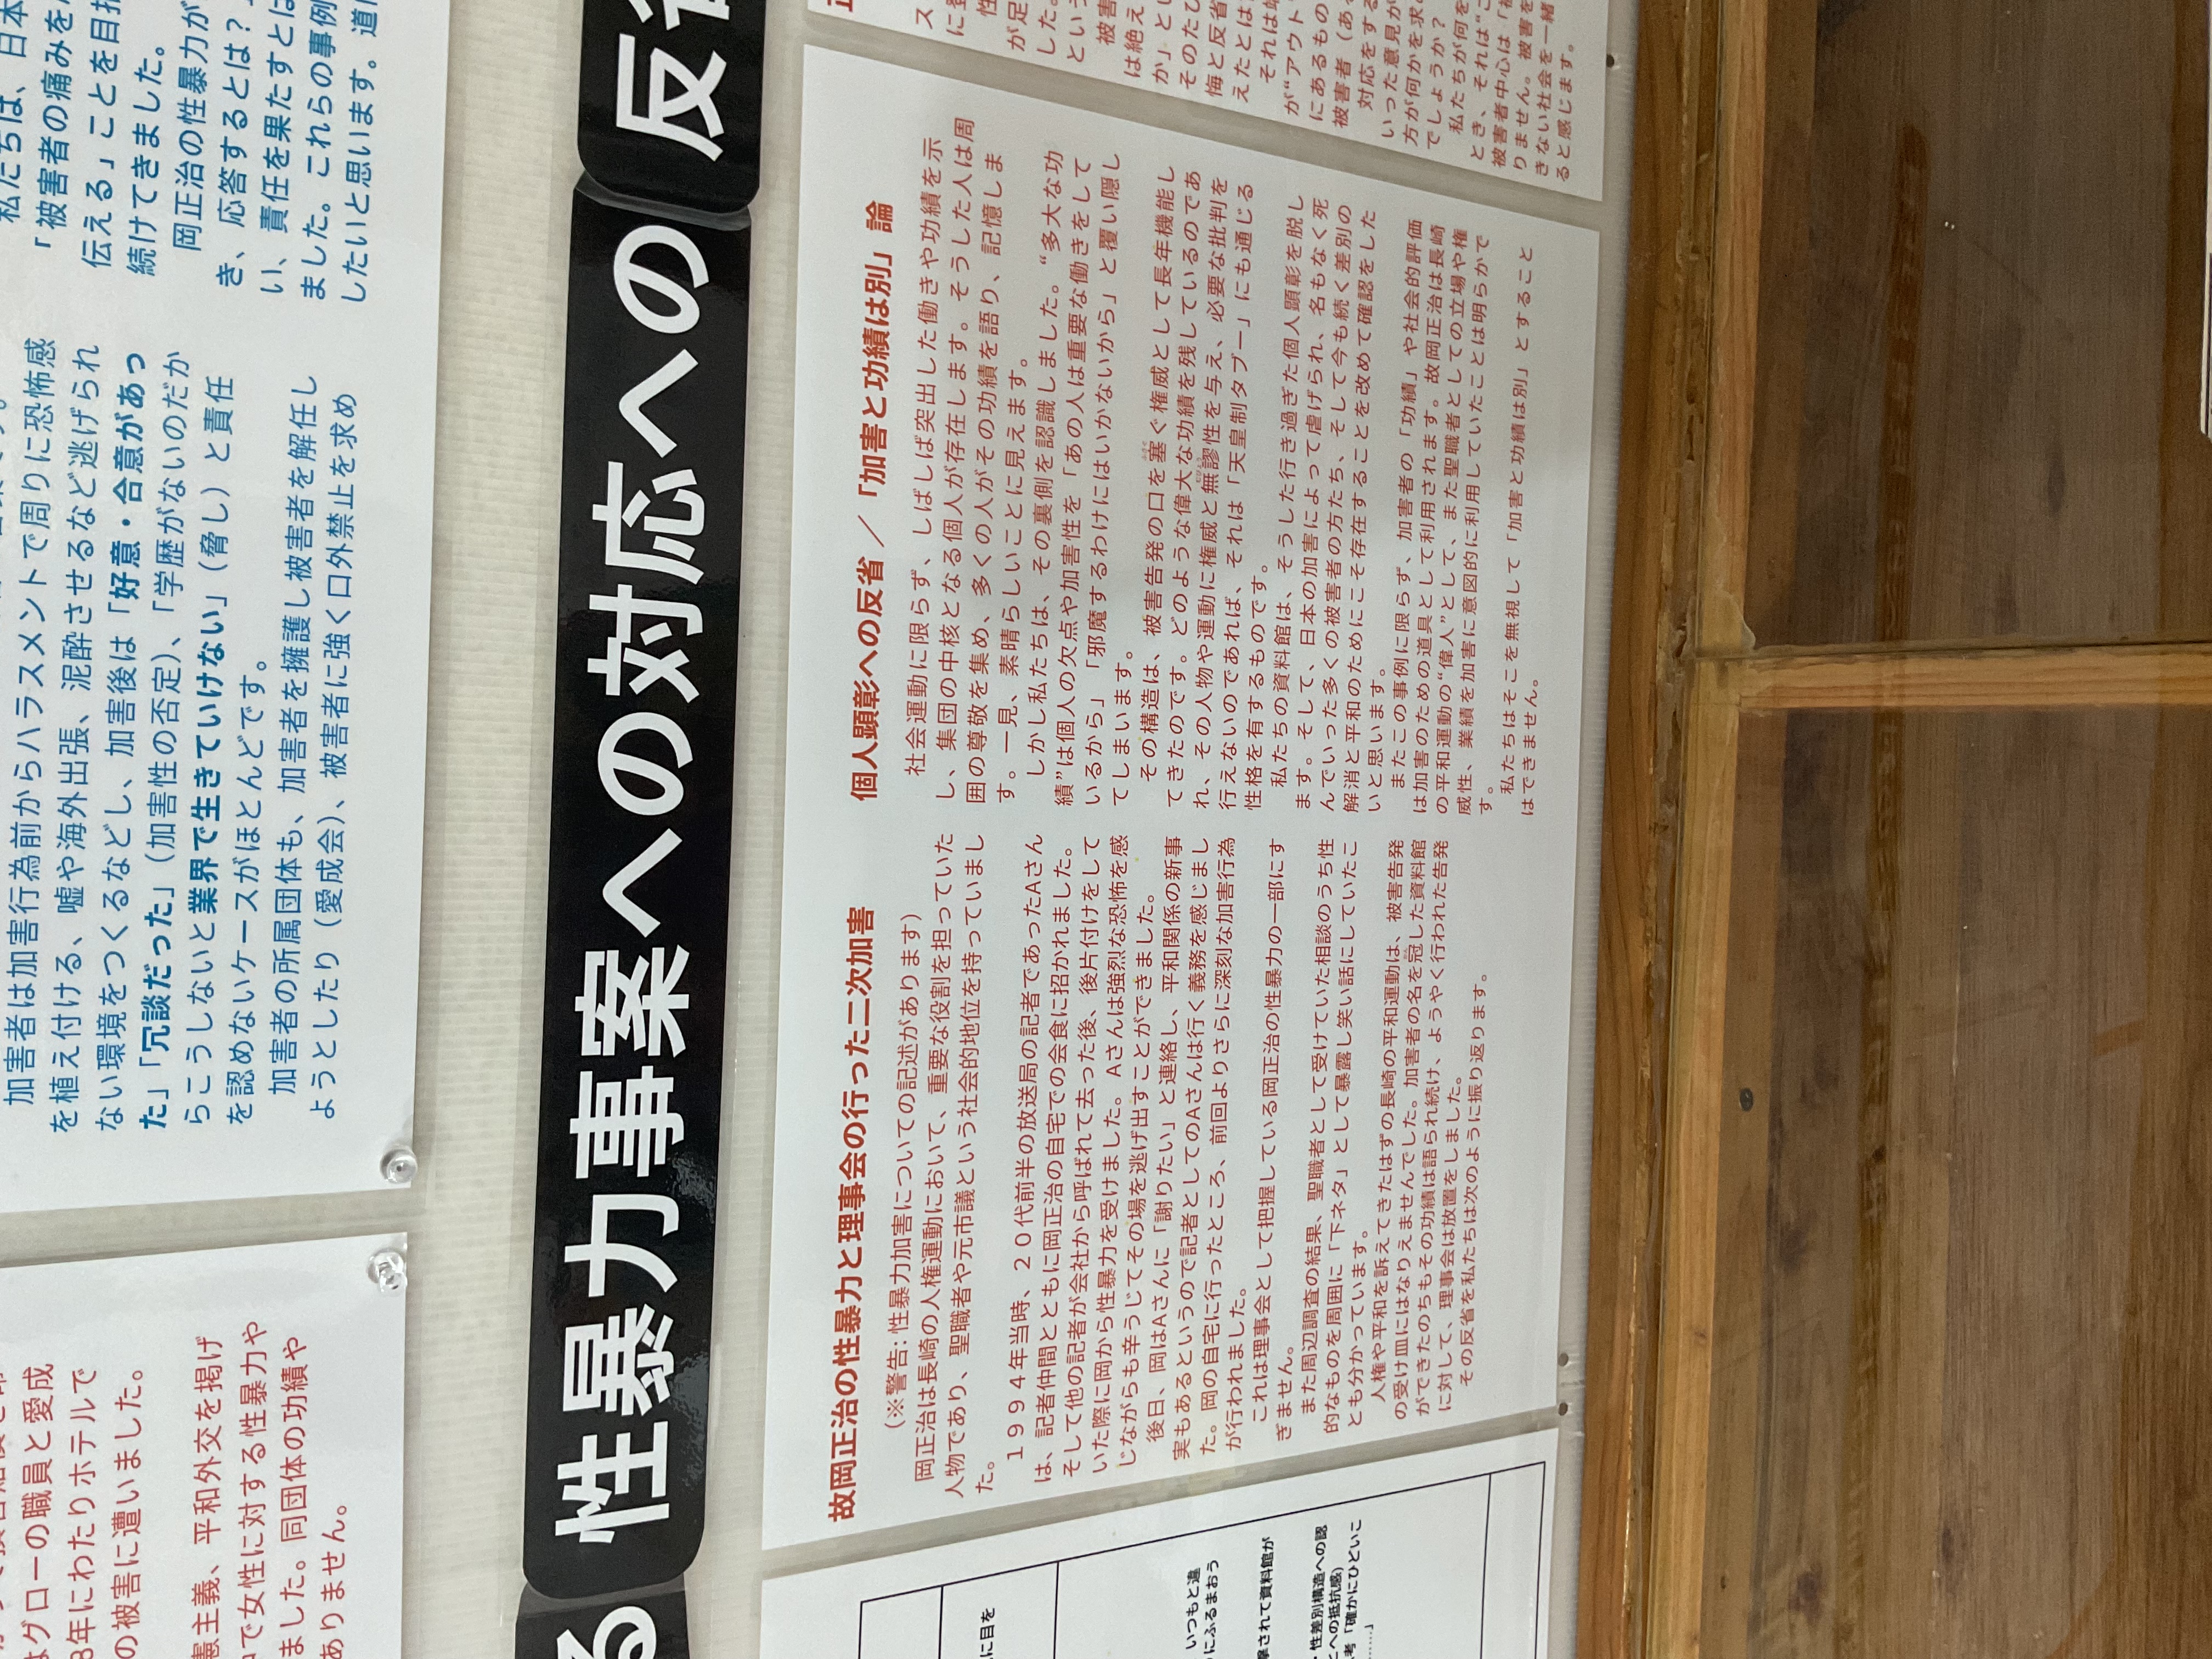 はグローの職員と愛成
年にわたりホテルで
の被害に遭いました。
憲主義、平和外交を掲げ
中で女性に対する性暴力や
ました。同団体の功績や
ありません。
加害者は加害行為前からハラスメントで周りに恐怖感
を植え付ける、嘘や海外出張、泥酔させるなど逃げられ
ない環境をつくるなどし、加害後は「好意・合意があっ
た」「冗談だった」（加害性の否定）、「学歴がないのだか
らこうしないと業界で生きていけない」（脅し）と責任
を認めないケースがほとんどです。
加害者の所属団体も、加害者を擁護し被害者を解任し
ようとしたり（愛成会）、被害者に強く口外禁止を求め
私たちは、日本
「被害者の痛みを
伝える」ことを目指
続けてきました。
岡正治の性暴力が
き、応答するとは？
い、責任を果たすとは
ました。これらの事例
したいと思います。道
る
性暴力事案への対応への
反省
に目を
いつもと違
にふるまおう
されて資料館が
性差別構造への認
とへの抵抗感）
考「確かにひどいこ
……」
故岡正治の性暴力と理事会の行った二次加害
（※警告：性暴力加害についての記述があります）
岡正治は長崎の人権運動において、重要な役割を担っていた
人物であり、聖職者や元市議という社会的地位を持っていまし
た。
１９９４年当時、２０代前半の放送局の記者であったAさん
は、記者仲間とともに岡正治の自宅での会食に招かれました。
そして他の記者が会社から呼ばれて去った後、後片付けをして
いた際に岡から性暴力を受けました。Aさんは強烈な恐怖を感
じながらも辛うじてその場を逃げ出すことができました。
後日、岡はAさんに「謝りたい」と連絡し、平和関係の新事
実もあるというので記者としてのAさんは行く義務を感じまし
た。岡の自宅に行ったところ、前回よりさらに深刻な加害行為
が行われました。
これは理事会として把握している岡正治の性暴力の一部にす
ぎません。
また周辺調査の結果、聖職者として受けていた相談のうち性
的なものを周囲に「下ネタ」として暴露し笑い話にしていたこ
とも分かっています。
人権や平和を訴えてきたはずの長崎の平和運動は、被害告発
の受け皿にはなりえませんでした。加害者の名を冠した資料館
ができたのちもその功績は語られ続け、ようやく行われた告発
に対して、理事会は放置をしました。
その反省を私たちは次のように振り返ります。
個人顕彰への反省 ／ 「加害と功績は別」論
社会運動に限らず、しばしば突出した働きや功績を示
し、集団の中核となる個人が存在します。そうした人は周
囲の尊敬を集め、多くの人がその功績を語り、記憶しま
す。一見、素晴らしいことに見えます。
しかし私たちは、その裏側を認識しました。“多大な功
績”は個人の欠点や加害性を「あの人は重要な働きをして
いるから」「邪魔するわけにはいかないから」と覆い隠し
てしまいます。
その構造は、被害告発の口を塞ぐ権威として長年機能し
てきたのです。どのような偉大な功績を残しているのであ
れ、その人物や運動に権威と無謬性を与え、必要な批判を
行えないのであれば、それは「天皇制タブー」にも通じる
性格を有するものです。
私たちの資料館は、そうした行き過ぎた個人顕彰を脱し
ます。そして、日本の加害によって虐げられ、名もなく死
んでいった多くの被害者の方たち、そして今も続く差別の
解消と平和のためにこそ存在することを改めて確認をした
いと思います。
またこの事例に限らず、加害者の「功績」や社会的評価
は加害のための道具として利用されます。故岡正治は長崎
の平和運動の“偉人”として、また聖職者としての立場や権
威性、業績を加害に意図的に利用していたことは明らかで
す。
私たちはそこを無視して「加害と功績は別」とすること
はできません。
が足
した。
という
被害
は絶え
か」とい
そのたび
悔と反省
えたとは
それは
が“アウト”
にあるもの
被害者（ある
対応をする
いった意見が
方が何かを求め
でしょうか？
私たちが何を
とき、それは“こ
被害者中心は「被
りません。被害を
きない社会を一緒
ると感じます。